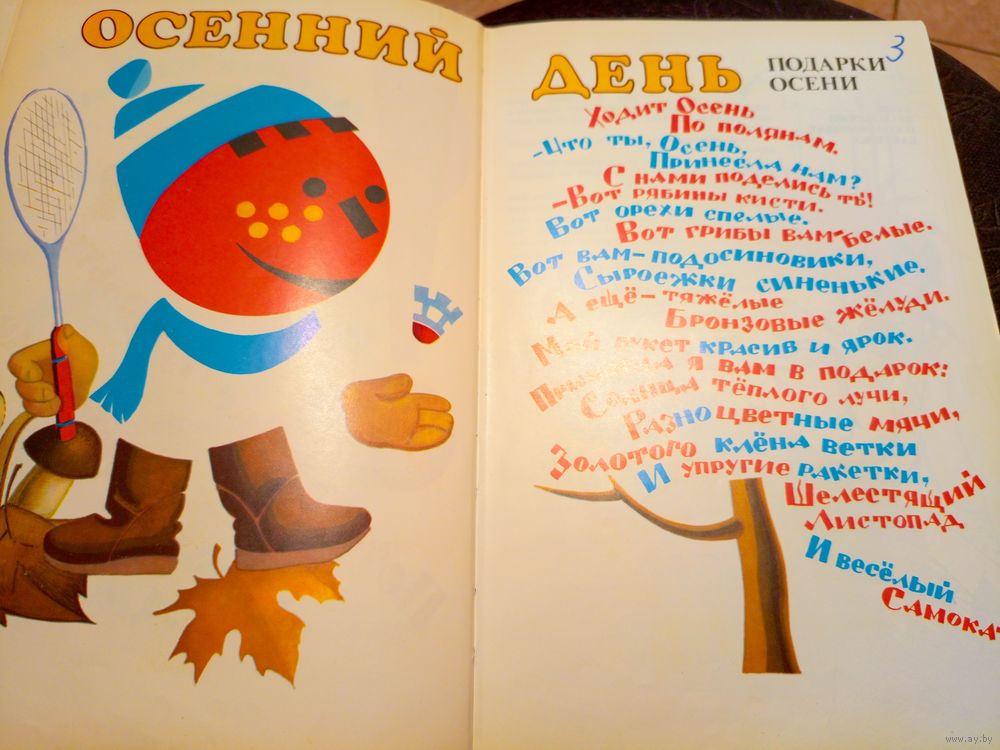 ОСЕННИЙ ДЕНЬ
ПОДАРКИ 3
ОСЕНИ
Ходит Осень
По полянам.
-Что ты, Осень,
Принесла нам?
С нами поделись ты!
-Вот рябины кисти.
Вот орехи спелые.
Вот грибы вам-белые.
Вот вам-подосиновики,
Сыроежки синенькие.
А ещё-тяжёлые
Бронзовые жёлуди.
Мой букет красив и ярок.
Принесла я вам в подарок:
Солнца тёплого лучи,
Разноцветные мячи,
Золотого клёна ветки
И упругие ракетки,
Шелестящий
Листопад
И весёлый
Самокат
www.ay.by